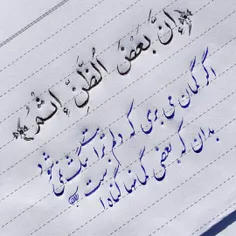 ﴿إِنَّ بَعْضَ الظَّنِّ إِثْمٌ﴾
اگر گمان می بری که دلم برایت تنگ نمی شود
بدان که بعضی گمانها گناه است